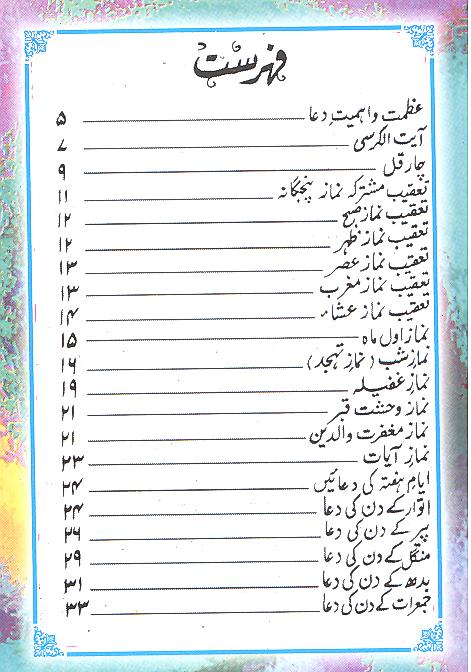 فہرست
عظمت و اہمیت دعا ۵
آیت الکرسی ۷
چار قل ۹
تعقیب مشترکہ نماز پنجگانہ ۱۱
تعقیب نماز صبح ۱۲
تعقیب نماز ظہر ۱۲
تعقیب نماز عصر ۱۳
تعقیب نماز مغرب ۱۳
تعقیب نماز عشاء ۱۴
نماز اول ماہ ۱۵
نماز شب (نماز تہجد) ۱۶
نماز غفیلہ ۱۹
نماز وحشت قبر ۲۱
نماز مغفرت والدین ۲۱
نماز آیات ۲۳
ایام ہفتہ کی دعائیں ۲۴
اتوار کے دن کی دعا ۲۴
پیر کے دن کی دعا ۲۶
منگل کے دن کی دعا ۲۹
بدھ کے دن کی دعا ۳۱
جمعرات کے دن کی دعا ۳۳